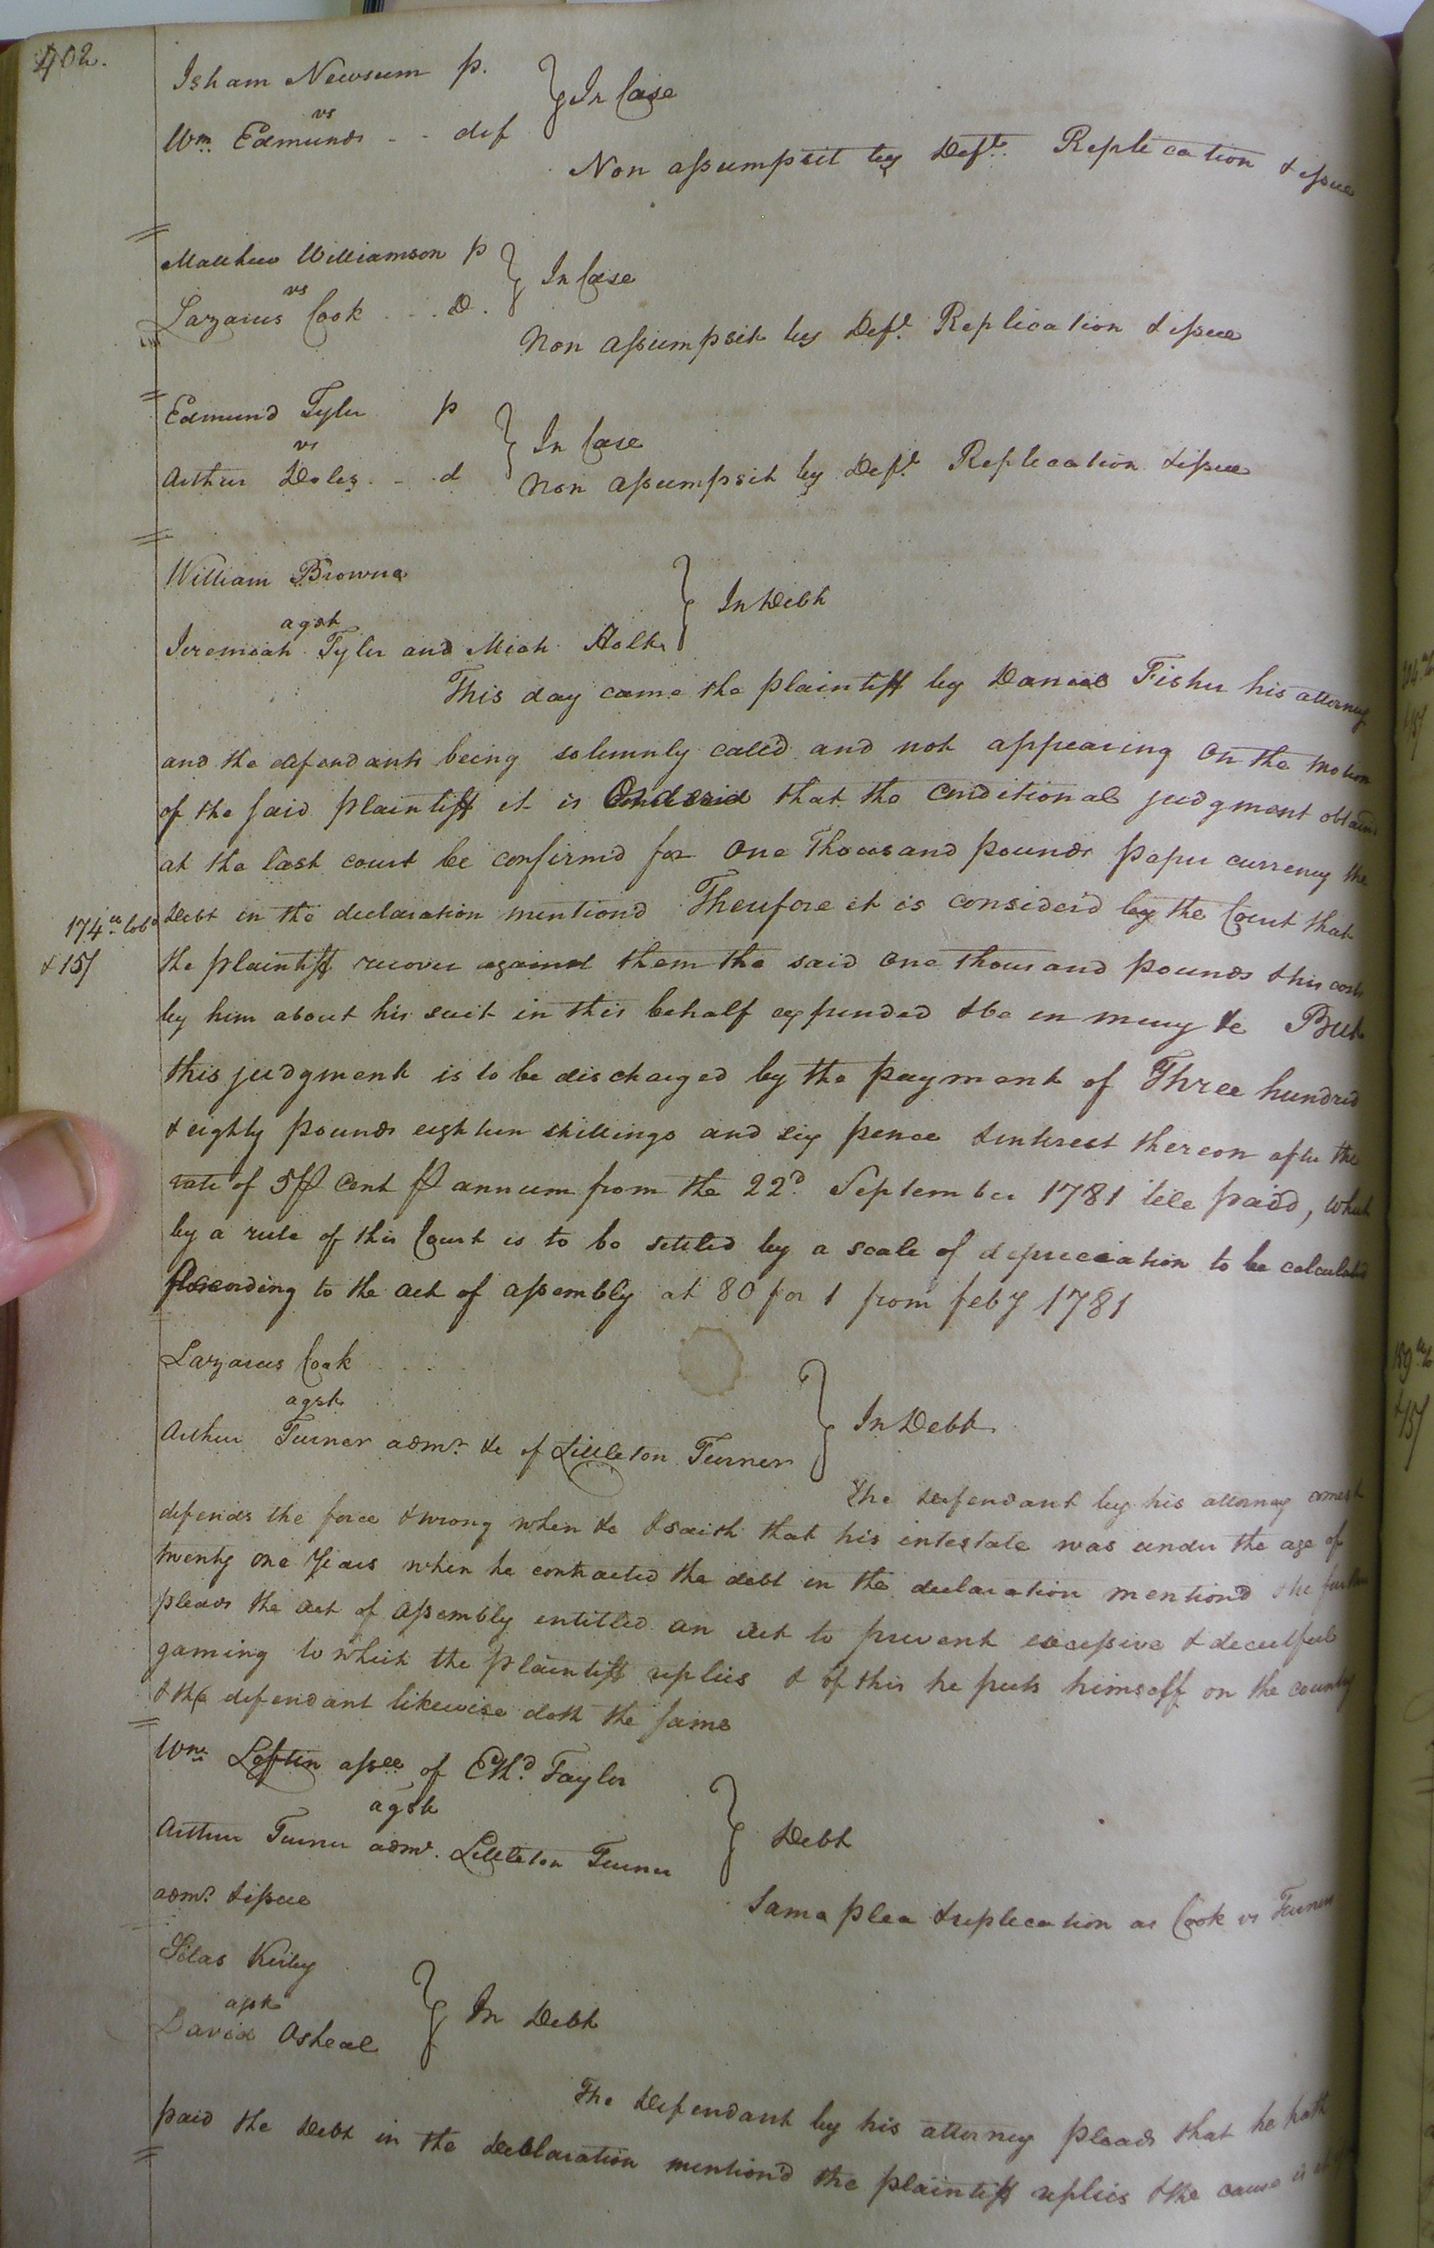 402.
Isham Newsum p.
vs
Wm. Edmunds - - def
In Case
Non assumpsit by Deft. Replication & issue
Matthew Williamson p
vs
Lazarus Cook - - - D.
In Case
Non assumpsit by Deft. Replication & issue
Edmund Tyler p
vs
Arthur Doles - - d
In Case
Non assumpsit by Deft. Replication & issue
William Browne
agst
Jeremiah Tyler and Mich Holt
In Debt
This day came the plaintiff by Daniel Fisher his attorney
and the defendants being solemnly call'd and not appearing On the motion
of the said plaintiff it is Ordered that the Conditional judgment obtaind
at the last court be confirm'd for One Thousand pounds paper currency the
Debt in the declaration mention'd Therefore it is consider'd by the Court that
174
& 15/
the plaintiff recover against them the said One thousand pounds & his costs
by him about his suit in this behalf expended & be in mercy &c But
this judgment is to be discharged by the payment of Three hundred
& eighty pounds eighteen shillings and six pence & interest thereon after the
rate of 5 ⅌ Cent ⅌ annum from the 22d. September 1781 till paid, which
by a rule of this Court is to be settled by a scale of depreciation to be calculated
According to the act of assembly at 80 for 1 from feby 1781
Lazarus Cook
agst
Arthur Turner admr. &c of Littleton Turner
In Debt
The defendant by his attorney comes &
defends the force & wrong when &c & saith that his intestate was under the age of
twenty one Years when he contracted the debt in the declaration mention'd & he further
pleads the act of assembly entitled an act to prevent excessive & deceitful
gaming to which the plaintiff replies & of this he puts himself on the country
& the defendant likewise doth the same
Wm. Loftin assee of Ethd. Taylor
agst
Arthur Turner admr. Littleton Turner
Debt
Same plea & replication as Cook vs Turner
admr. & issue
Silas Kirby
agst
David Osheal
In Debt
The Defendant by his attorney pleads that he hath
paid the Debt in the declaration mention'd the plaintiff replies & the cause is